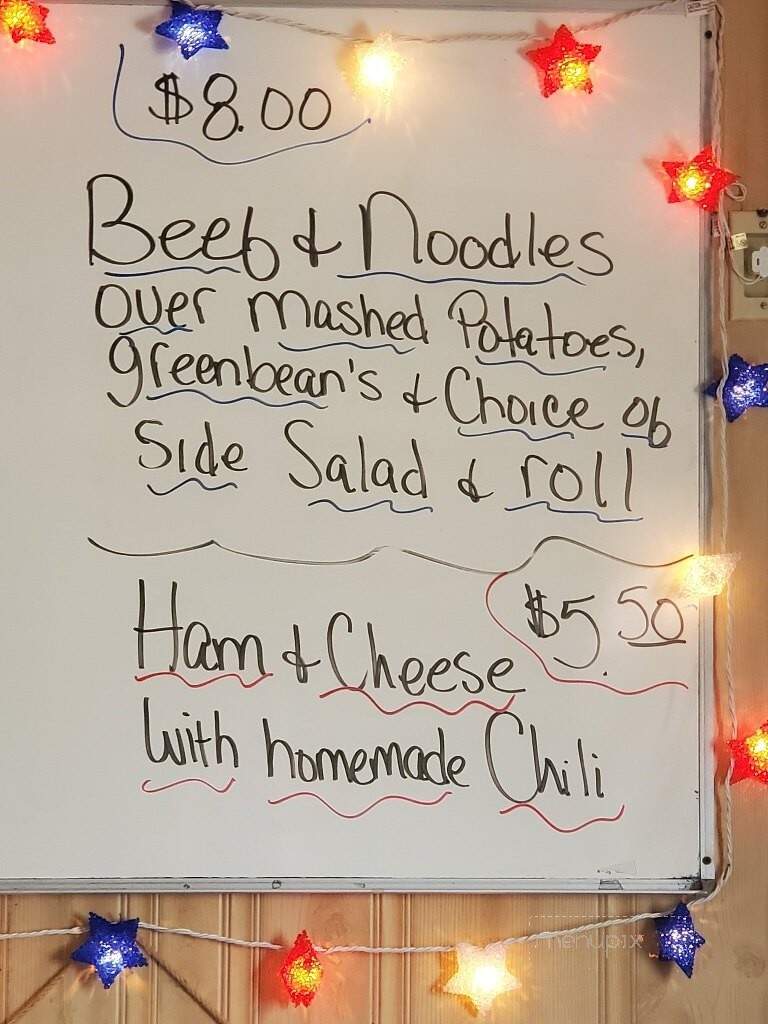 $8.00
Beef & Noodles
over mashed Potatoes,
greenbean's & Choice of
Side Salad & roll
$5.50
Ham & Cheese
with homemade Chili
menupix